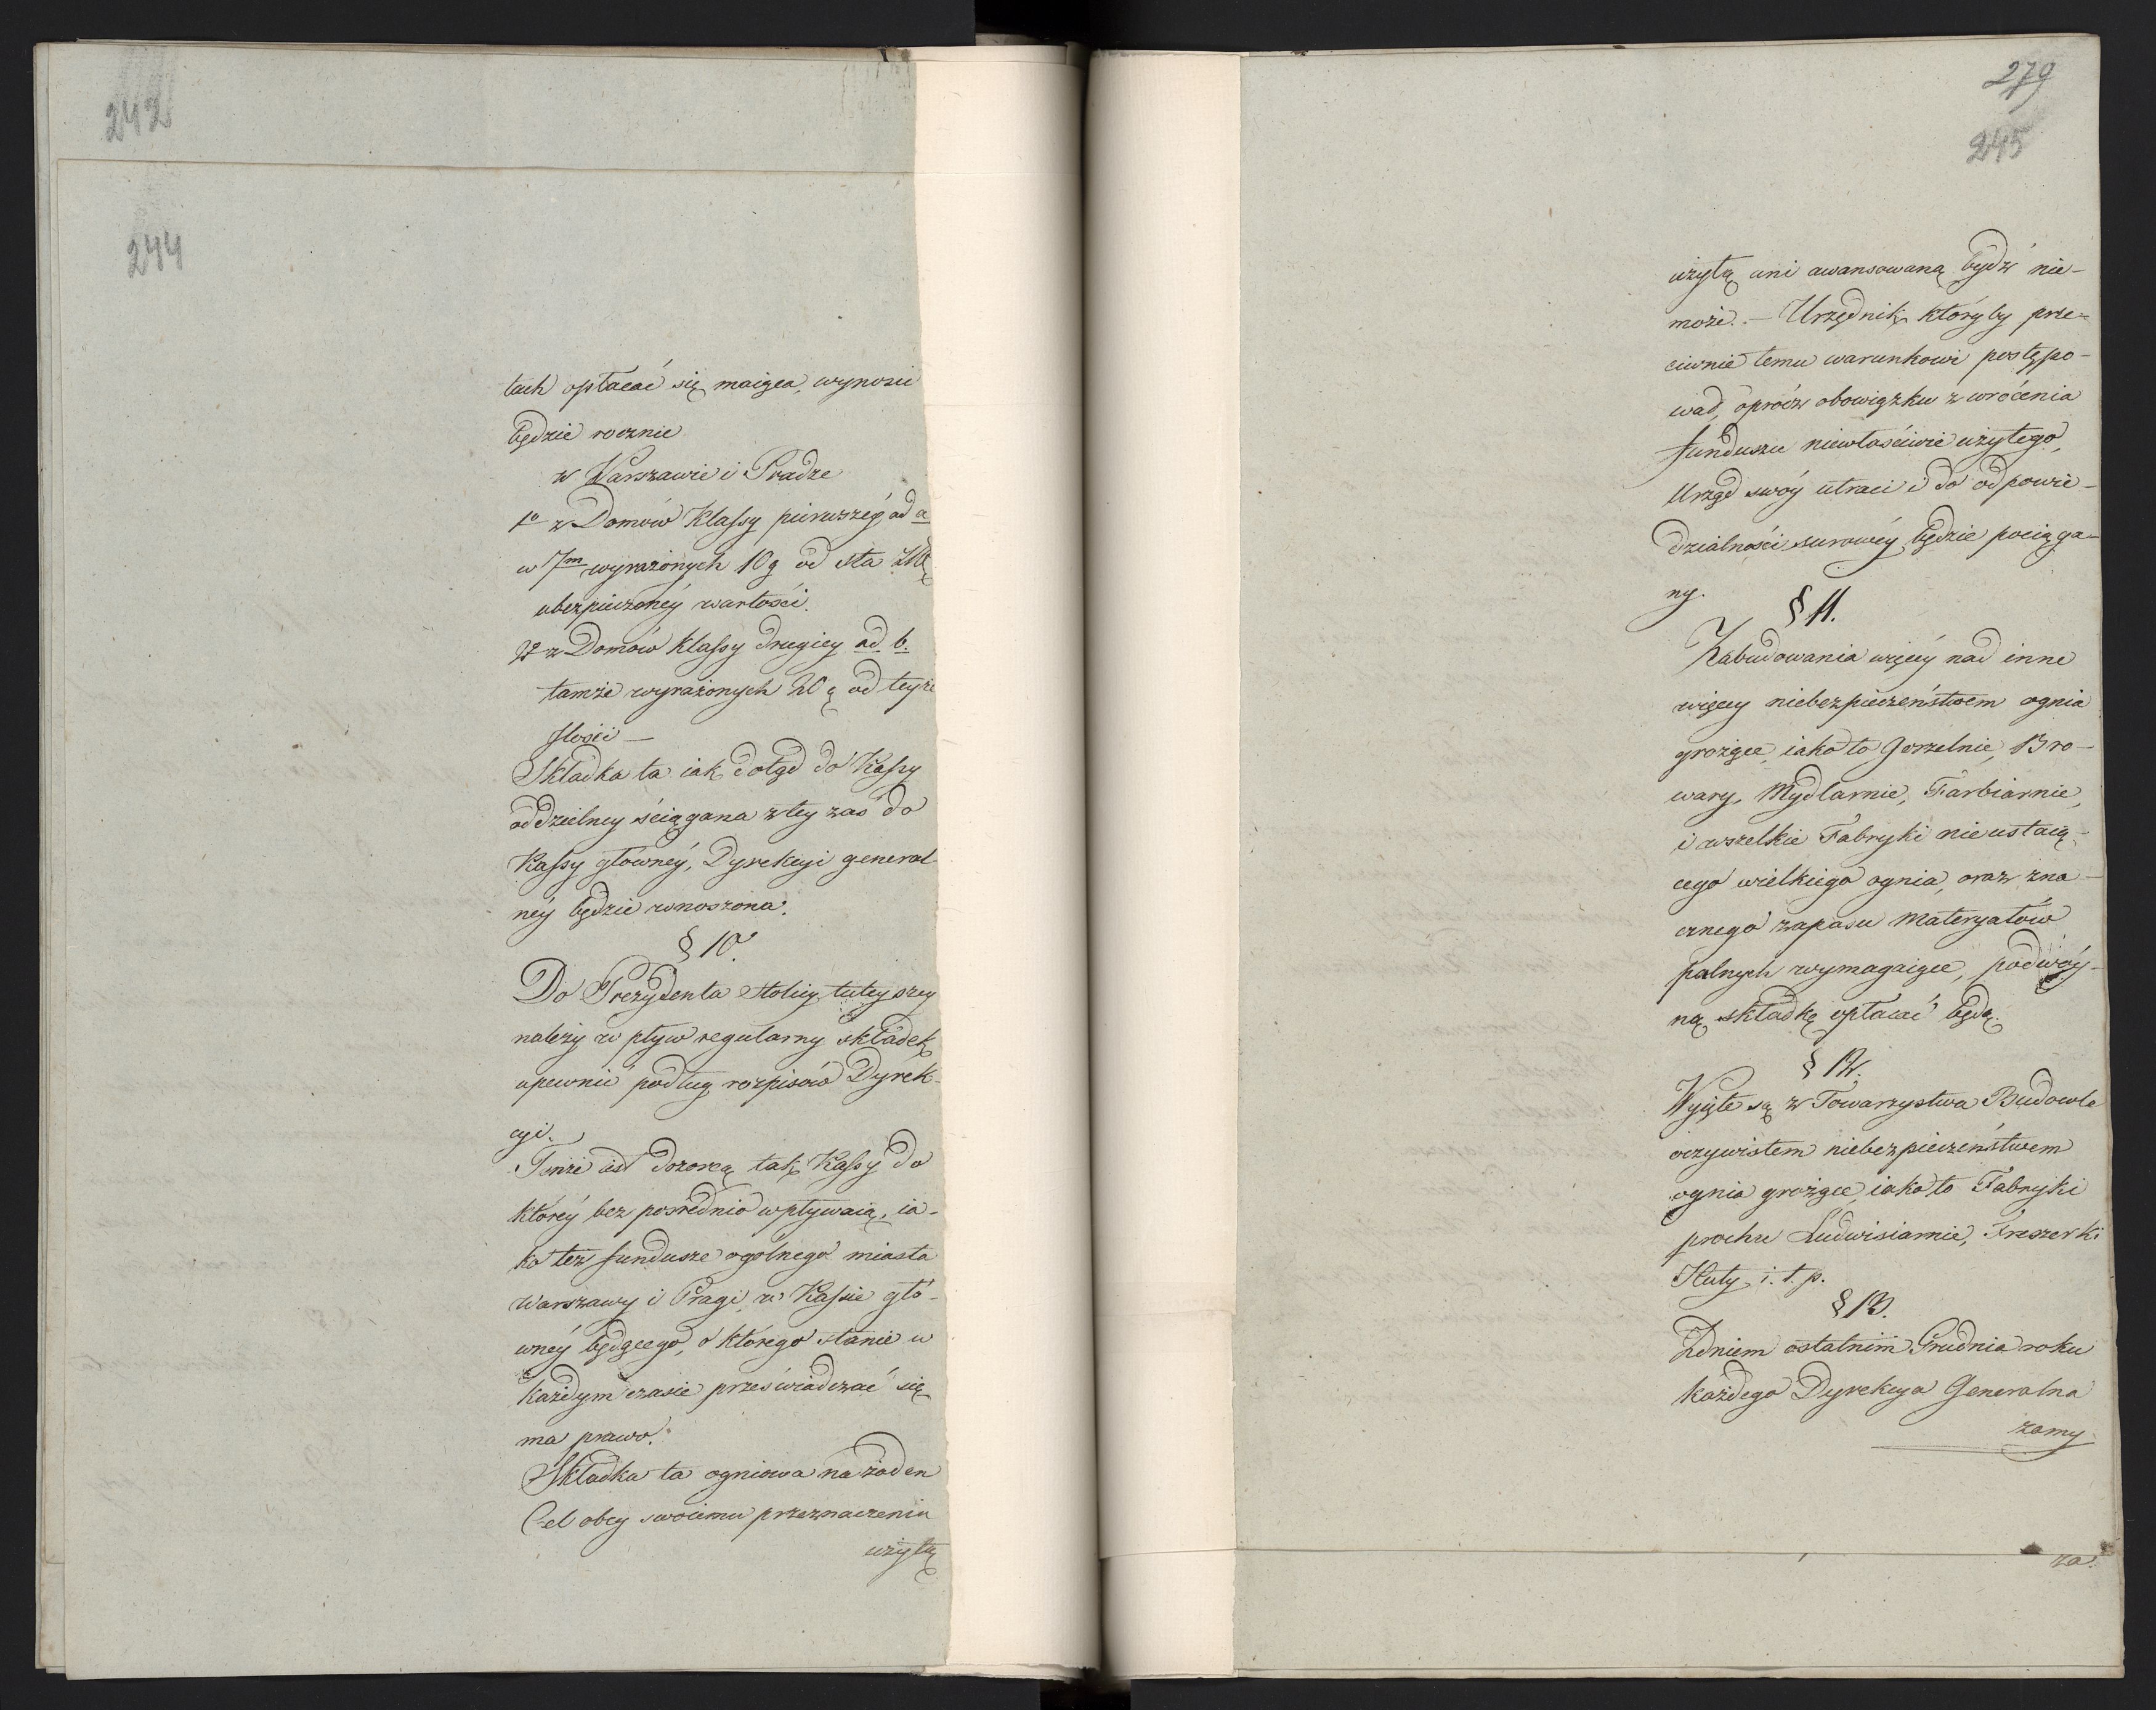 242
244
tach opłacać się maiąca, wynosić
będzie rocznie
w Warszawie i Pradze
1o z Domów Klassy pierwszéy ad a
w 7m wyrażonych 10 g od sta Złł
ubezpieczonéy wartości.
2o z Domów Klassy drugiey ad b.
tamże wyrażonych 20 g od teyże
Ilości —
Składka ta iak dotąd do Kassy
oddzielney ściągana z tey zaś do
Kassy głównéy, Dyrekcyi general-
néy będzie wnoszona.
§ 10.
Do Prezydenta Stolicy tuteyszey
należy wpływ regularny składek
upewnić podług rozpisów Dyrek-
cyi.
Tenże iest dozorcą tak Kassy do
któréy bez pośrednio wpływaią, ia-
ko też funduszu ogólnego miasta
Warszawy i Pragi, w Kassie głó-
wnéy będącego, o którego stanie w
każdym czasie przeświadczać się
ma prawo.
Składka ta ogniowa na żaden
Cel obcy swoiemu przeznaczeniu
użytą
279
245
użytą ani awansowaną bydź nie-
może. — Urzędnik któryby prze-
ciwnie temu warunkowi postępo-
wał, oprócz obowiązku zwrócenia
funduszu niewłaściwie użytego,
Urząd swóy utraci i do odpowie-
dzialności surowéy będzie pociąga-
ny.
§ 11.
Zabudowania więcéy nad inne
więcey niebezpieczeństwem ognia
grożące, iako to Gorzelnie, Bro-
wary, Mydlarnie, Farbiarnie,
i wszelkie Fabryki nieustaią-
cego wielkiego ognia, oraz zna-
cznego zapasu materyałów
palnych wymagaiące, podwóy-
ną składkę opłacać będą.
§ 12.
Wyięte są z Towarzystwa Budowle
oczywistem niebezpieczeństwem
ognia grożące iako to Fabryki
prochu Ludwisiarnie, Freszerki
Huty i. t. p.
§ 13.
Z dniem ostatnim Grudnia roku
każdego Dyrekcya Generalna
zamy
za